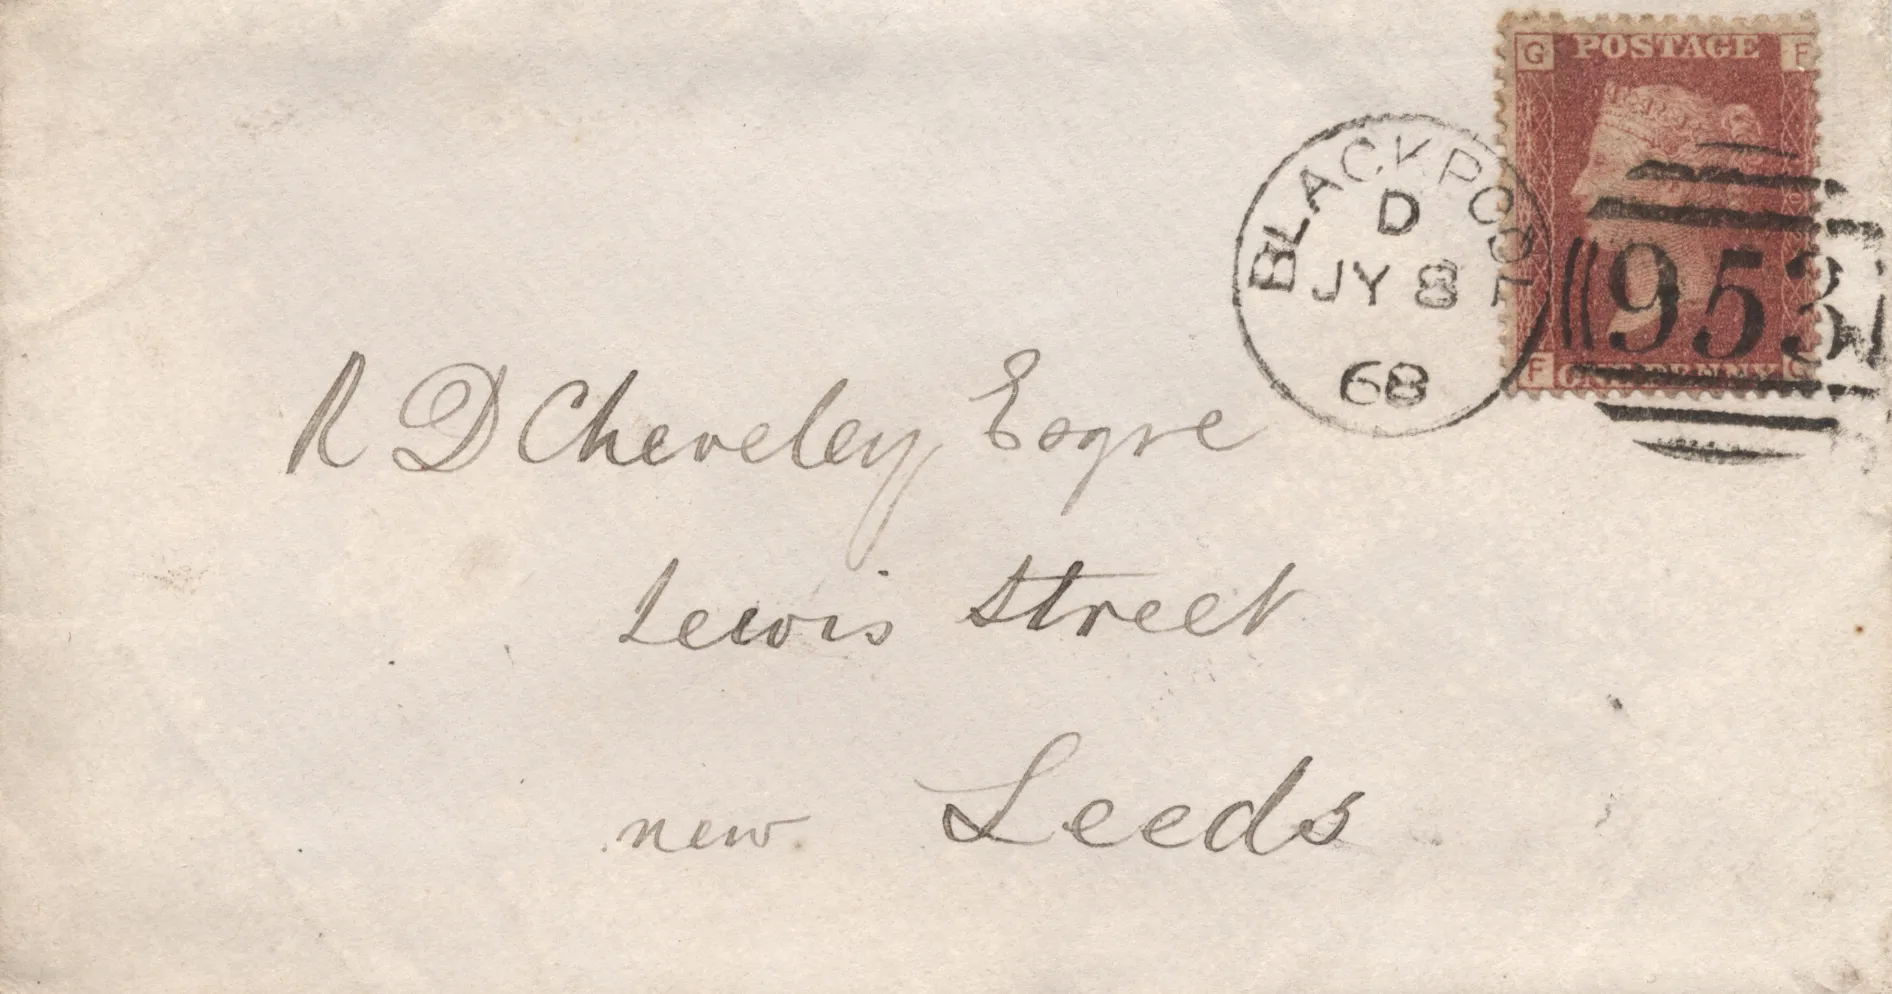 G POSTAGE F
BLACKPOOL
D
JY 8
68
953
F ONE PENNY G
R D Cheveley Esqre
Lewis Street
new Leeds